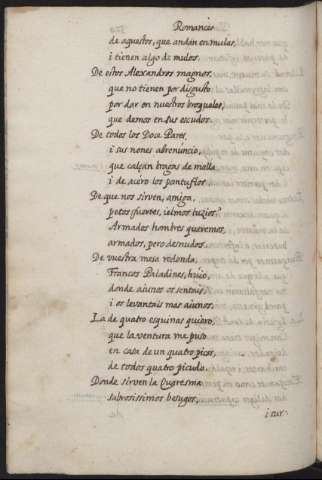 Romances
de aquestos, que andan en mulas,
i tienen algo de mulos.
De estos Alexandros magnos,
que no tienen por disgusto
por dar en nuestros broqueles,
que demos en sus escudos.
De todos los Doce Pares,
i sus nones abrenuncio,
que calçan bragas de malla
i de acero los pantuflos.
De que nos sirven, amiga,
petos fuertes, ielmos luzios?
Armados hombres queremos,
armados, pero desnudos.
De vuestra mesa redonda,
Frances Paladines, huio,
donde aiunos os sentais,
i os levantais mas aiunos.
La de quatro esquinas quiero,
que la ventura me puso
en casa de un quatro picos,
de todos quatro piculo.
Donde sirven la Quaresma
sabrosissimos besugos,
i tur-